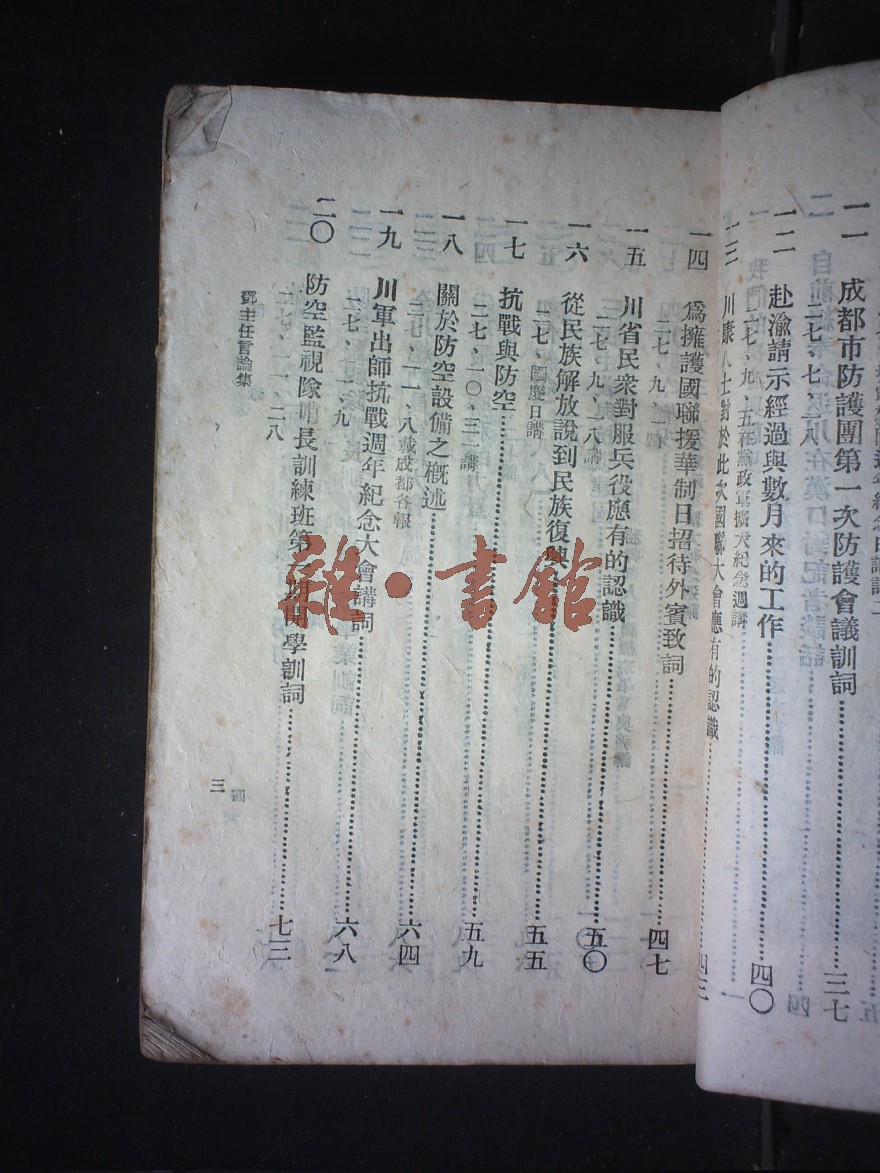 一一 成都市防護團第一次防護會議訓詞……三七
二七、七、八
一二 赴渝請示經過與數月來的工作……四〇
二七、九、五在黨政軍擴大紀念週講
一三 川康人士對於此次國聯大會應有的認識……四三
一四 爲擁護國聯援華制日招待外賓致詞……四七
二七、九、
一五 川省民衆對服兵役應有的認識……五〇
二七、九、八講
一六 從民族解放說到民族復興……五五
二七、國慶日講
一七 抗戰與防空……五九
二七、一〇、三一講
一八 關於防空設備之概述……六四
二七、一一、八載成都各報
一九 川軍出師抗戰週年紀念大會講詞……六八
二七、一、九
二〇 防空監視隊哨長訓練班第六期開學訓詞……七三
二七、一一、二八
鄧主任言論集
三
雜·書館